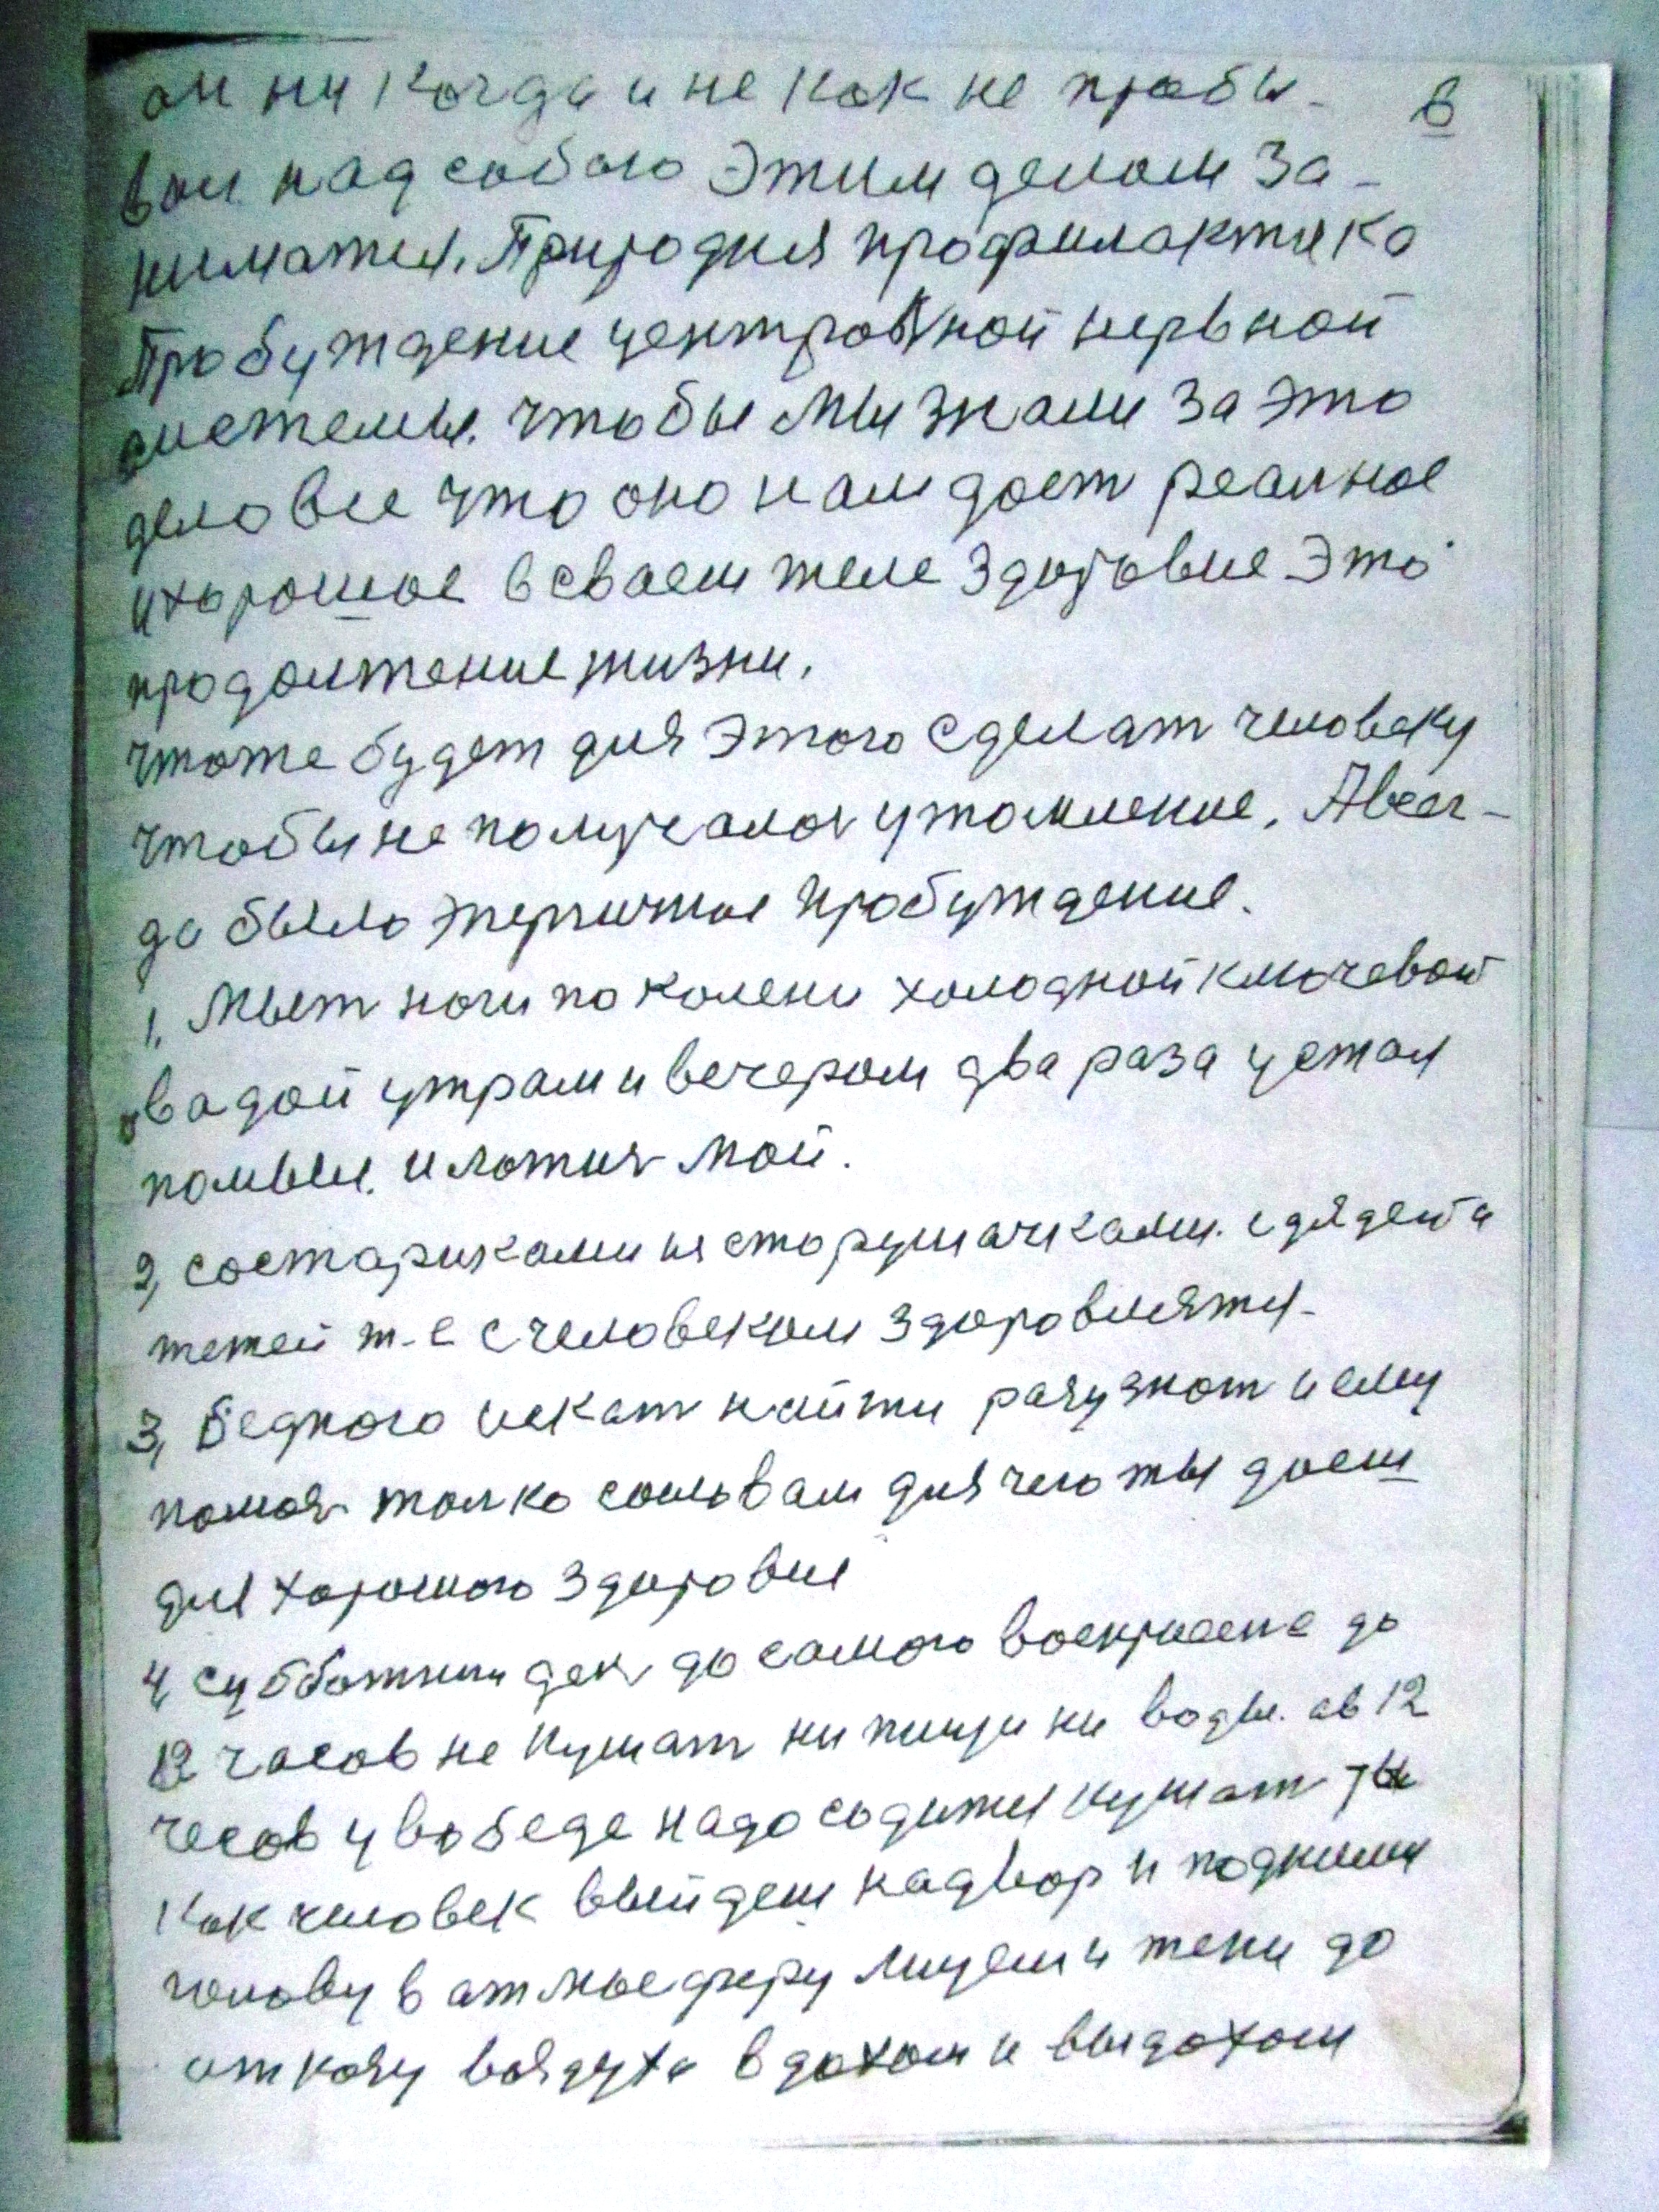 он ни когда и не как не пробы- 6
вал над собою этим делом за-
ниматся. Природная профилактика
Пробуждение центровной нервной
системы. чтобы мы знали за это
дело все что оно нам дает реалное
и хорошое в сваем теле здоровие это
продолжение жизни.
чтоже будет для этого сделат человеку
чтобы не получалос утомление. А всег-
да было энергичное пробуждение.
1. Мыет ноги по колени холодной ключевой
вадой утрам и вечером два раза устал
помыл. и ложис мой.
2, состариками и старушачками. с дядей и
тетей т-е с человеком здоровлятся-
3, бедного искат найти разузнат и ему
помоч толко словам для чего ты даеш
для хорошого здоровия
4, субботнии ден до самого воскрисене до
12 часов не кушат ни пищи ни воды. ав 12
часов у вобеде надо садится кушат ты
как человек выйдеш надвор и подними
голову в атмосферу лицем и тени до
отказу воздуха вдохом и выдохом